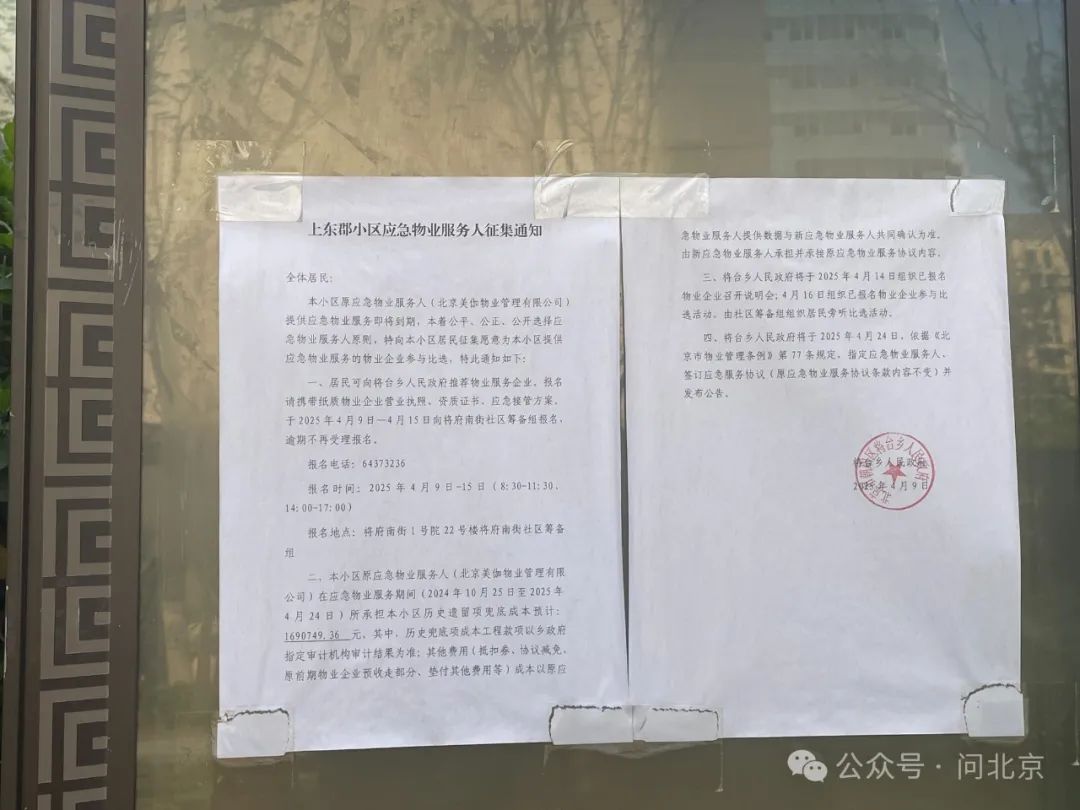 上东郡小区应急物业服务人征集通知
全体居民：
本小区原应急物业服务人（北京美伽物业管理有限公司）
提供应急物业服务即将到期，本着公平、公正、公开选择应
急物业服务人原则，特向本小区居民征集愿意为本小区提供
应急物业服务的物业企业参与比选，特此通知如下：
一、居民可向将台乡人民政府推荐物业服务企业。报名
请携带纸质物业企业营业执照、资质证书、应急接管方案，
于2025年4月9日—4月15日向将府南街社区筹备组报名，
逾期不再受理报名。
报名电话：64373236
报名时间：2025年4月9日-15日（8:30-11:30，
14:00-17:00）
报名地点：将府南街1号院22号楼将府南街社区筹备
组
二、本小区原应急物业服务人（北京美伽物业管理有限
公司）在应急物业服务期间（2024年10月25日至2025年
4月24日）所承担本小区历史遗留项兜底成本预计：
1690749.36 元。其中，历史兜底项成本工程款项以乡政府
指定审计机构审计结果为准；其他费用（抵扣券、协议减免、
原前期物业企业预收走部分、垫付其他费用等）成本以原应
急物业服务人提供数据与新应急物业服务人共同确认为准。
由新应急物业服务人承担并承接原应急物业服务协议内容。
三、将台乡人民政府将于2025年4月14日组织已报名
物业企业召开说明会；4月16日组织已报名物业企业参与比
选活动。由社区筹备组组织居民旁听比选活动。
四、将台乡人民政府将于2025年4月24日，依据《北
京市物业管理条例》第77条规定，指定应急物业服务人、
签订应急服务协议（原应急物业服务协议条款内容不变）并
发布公告。
将台乡人民政府
2025年4月9日
公众号·问北京